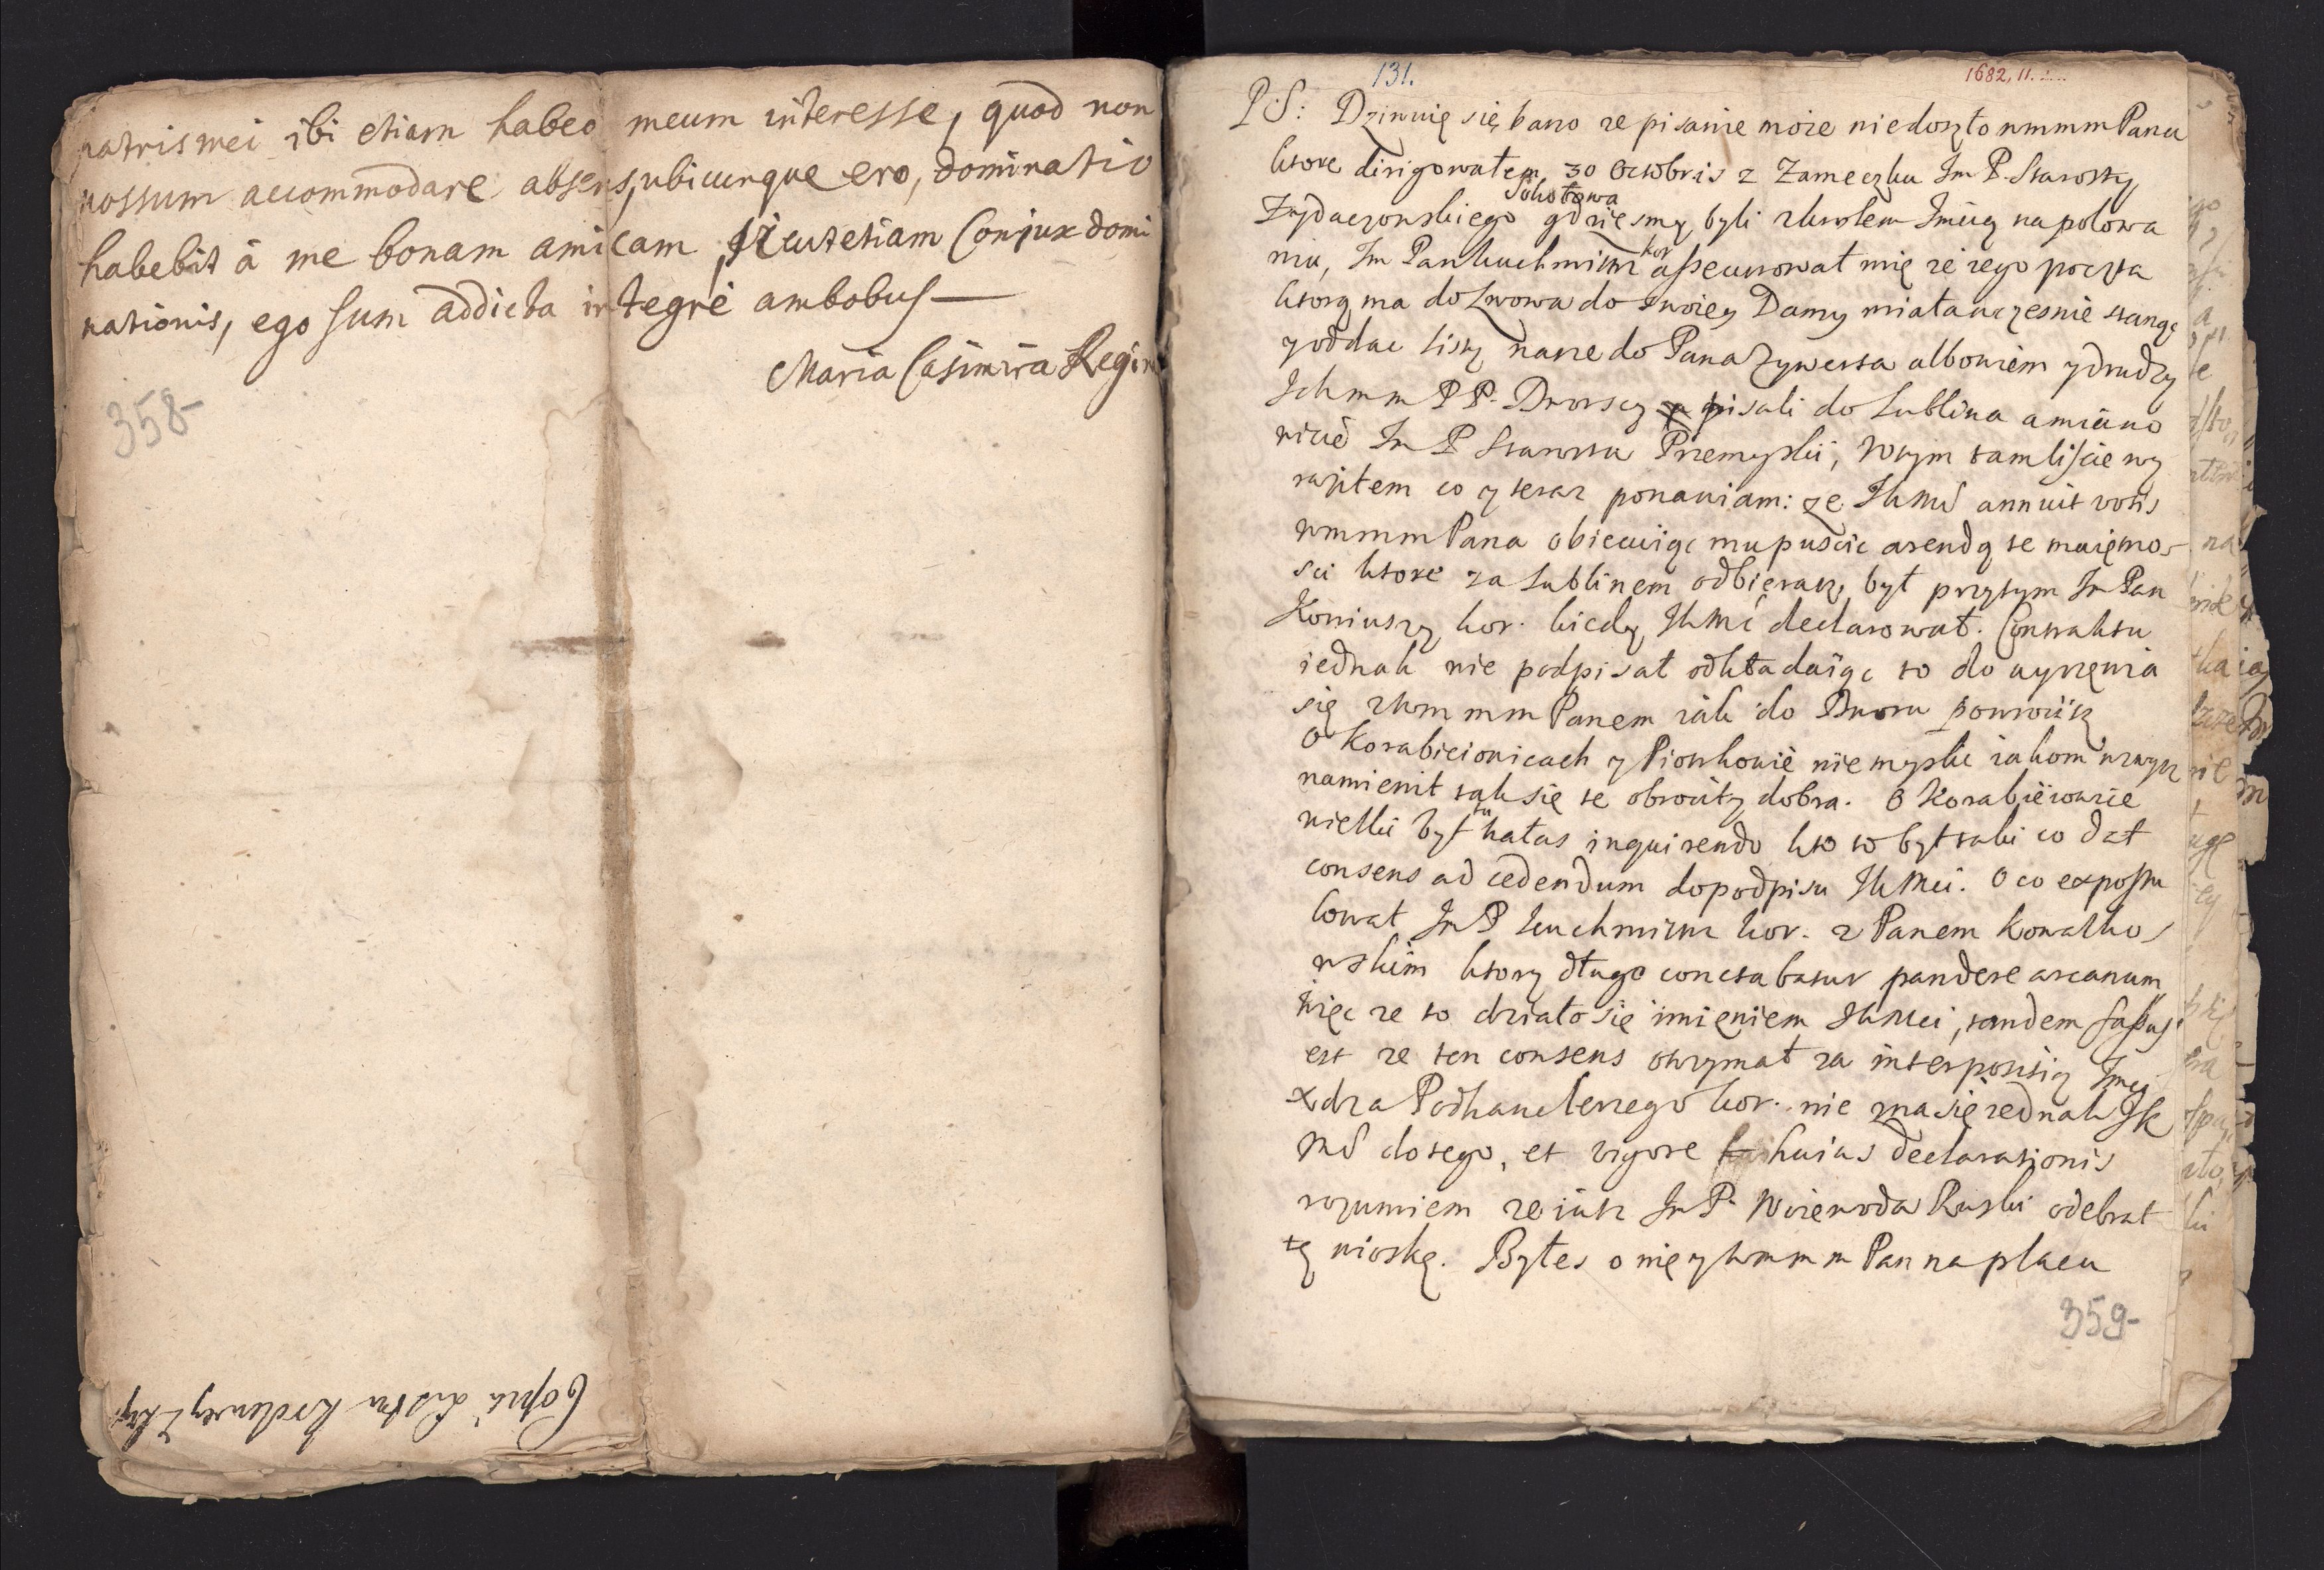 patris mei ibi etiam habeo meum interesse, quod non
possum accommodare absens, ubicunque ero, dominatio
habebit à me bonam amicam, sicut etiam Conjux domi
nationis, ego sum addicta integrè ambobus
Maria Casimira Regin
358-
Copia Listu Krolowey
131.
1682, 11.
PS: Dziwuię się bario ze pisanie moie niedoszło wmmm Panu
ktore dirigowałem 30 Octobris z Zameczku Im P. Starosty
Sokołowa
Zydaczowskiego gdzieśmy byli z krolem Imcią na polowa
niu, Im Pan kuchmistrz kor assecurował mię ze iego poczta
ktorą ma do Lwowa do swoiey Damy miała wczesnie stanąc
y oddac listy nasze do Pana Zywerta albowiem y drudzy
Ichmm PP. Dworscy pisali do Lublina a mieno
wicie Im P Starosta Przemyski, W tym tam liscie wy
raziłem co y teraz ponawiam: ze IKMć annuit votis
wmmm Pana obiecuiąc mu puscic arendą te maiętno-
sci ktore za Lublinem odbierasz, był przytym Im Pan
Koniuszy kor. kiedy IKMć declarował. Contraktu
iednak nie podpisał odkładaiąc to do uyrzenia
się z wmmm Panem iak do Dworu powrocisz
O Korabieiowicach y Piotrkowie nie mysle iakom wzwysz
namienił tak się te obrociły dobra. O Korabieiowice
wielki był tu hałas inquirendo kto to był taki co dał
consens ad cedendum do podpisu IKMci. O co expostu
lował Im P kuchmistrz kor. z Panem Kowalko
wskim ktory długo conctabatur pandere arcanum
więc ze to działo się imieniem IKMci, tandem fassus
est ze ten consens otrzymał za interpositią Imci
xdza Podkanclerzego kor. nie zna się iednak Ik
Mć do tego, et vigore huius declarationis
rozumiem ze iusz Im P. Woiewoda Ruski odebrał
tę wioskę. Byłes o nię y wmmm Pan na placu
359-